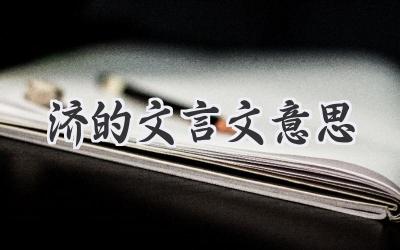 济的文言文意思